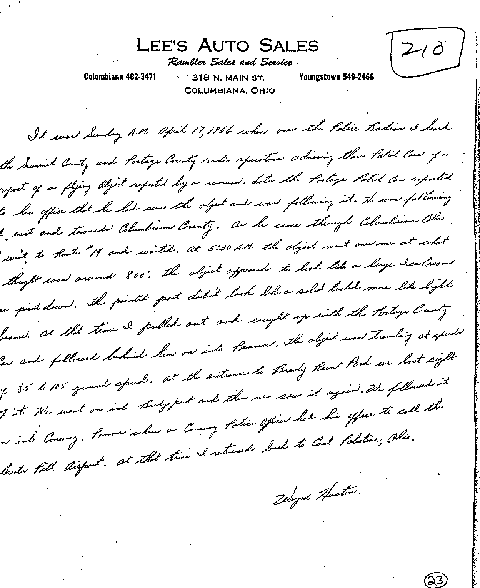 LEE'S AUTO SALES
Rambler Sales and Service
210
Columbiana 482-3471 318 N. MAIN ST. Youngstown 549-2466
COLUMBIANA, OHIO
It was Sunday A.M. April 17, 1966 when over the Police Radio I heard
the Summit County and Portage County radio operators advising their Patrol Cars of a
report of a flying Object reported by a woman. Later the Portage Patrol Car reported
to his office that he had seen the object and was following it. He was following
it east and towards Columbiana County. As he came through Columbiana Ohio
I went to Route 14 and waited. At 5:20 A.M. the object went over me at what
I thought was around 800'. the object appeared to look like a large Ice Cream
Cone pointed down. the pointed part didn't look like a solid but more like light
beams. At this time I pulled out and caught up with the Portage County
Car and followed behind him on into Penna. the object was traveling at speeds
of 85 to 105 ground speed. At the entrance to Brady Run Park we lost sight
of it. We went on into Bridgeport and then we saw it again. We followed it
on into Conway, Penna where a Conway Police Officer had his office to call the
Pitt. Airport. At that time I returned back to East Palestine, Ohio.
Wayne Huston
23